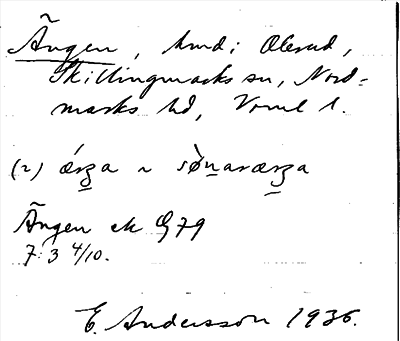 Ängen, hmd i Olerud,
Skillingmarks sn, Nord-
marks hd, Vrml l.
(r) ærʒa ~ sønaværʒa
Ängen ek G79
7:3 4/10.
E. Andersson 1936.